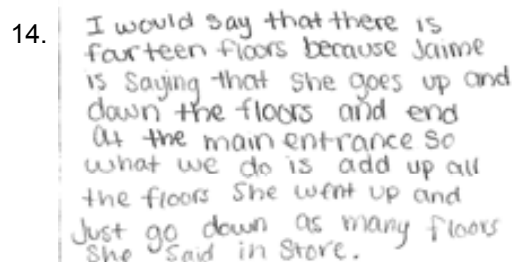 14.
I would say that there is
fourteen floors because Jaime
is Saying that she goes up and
down the floors and end
at the main entrance so
what we do is add up all
the floors She went up and
Just go down as many floors
She Said in Store.